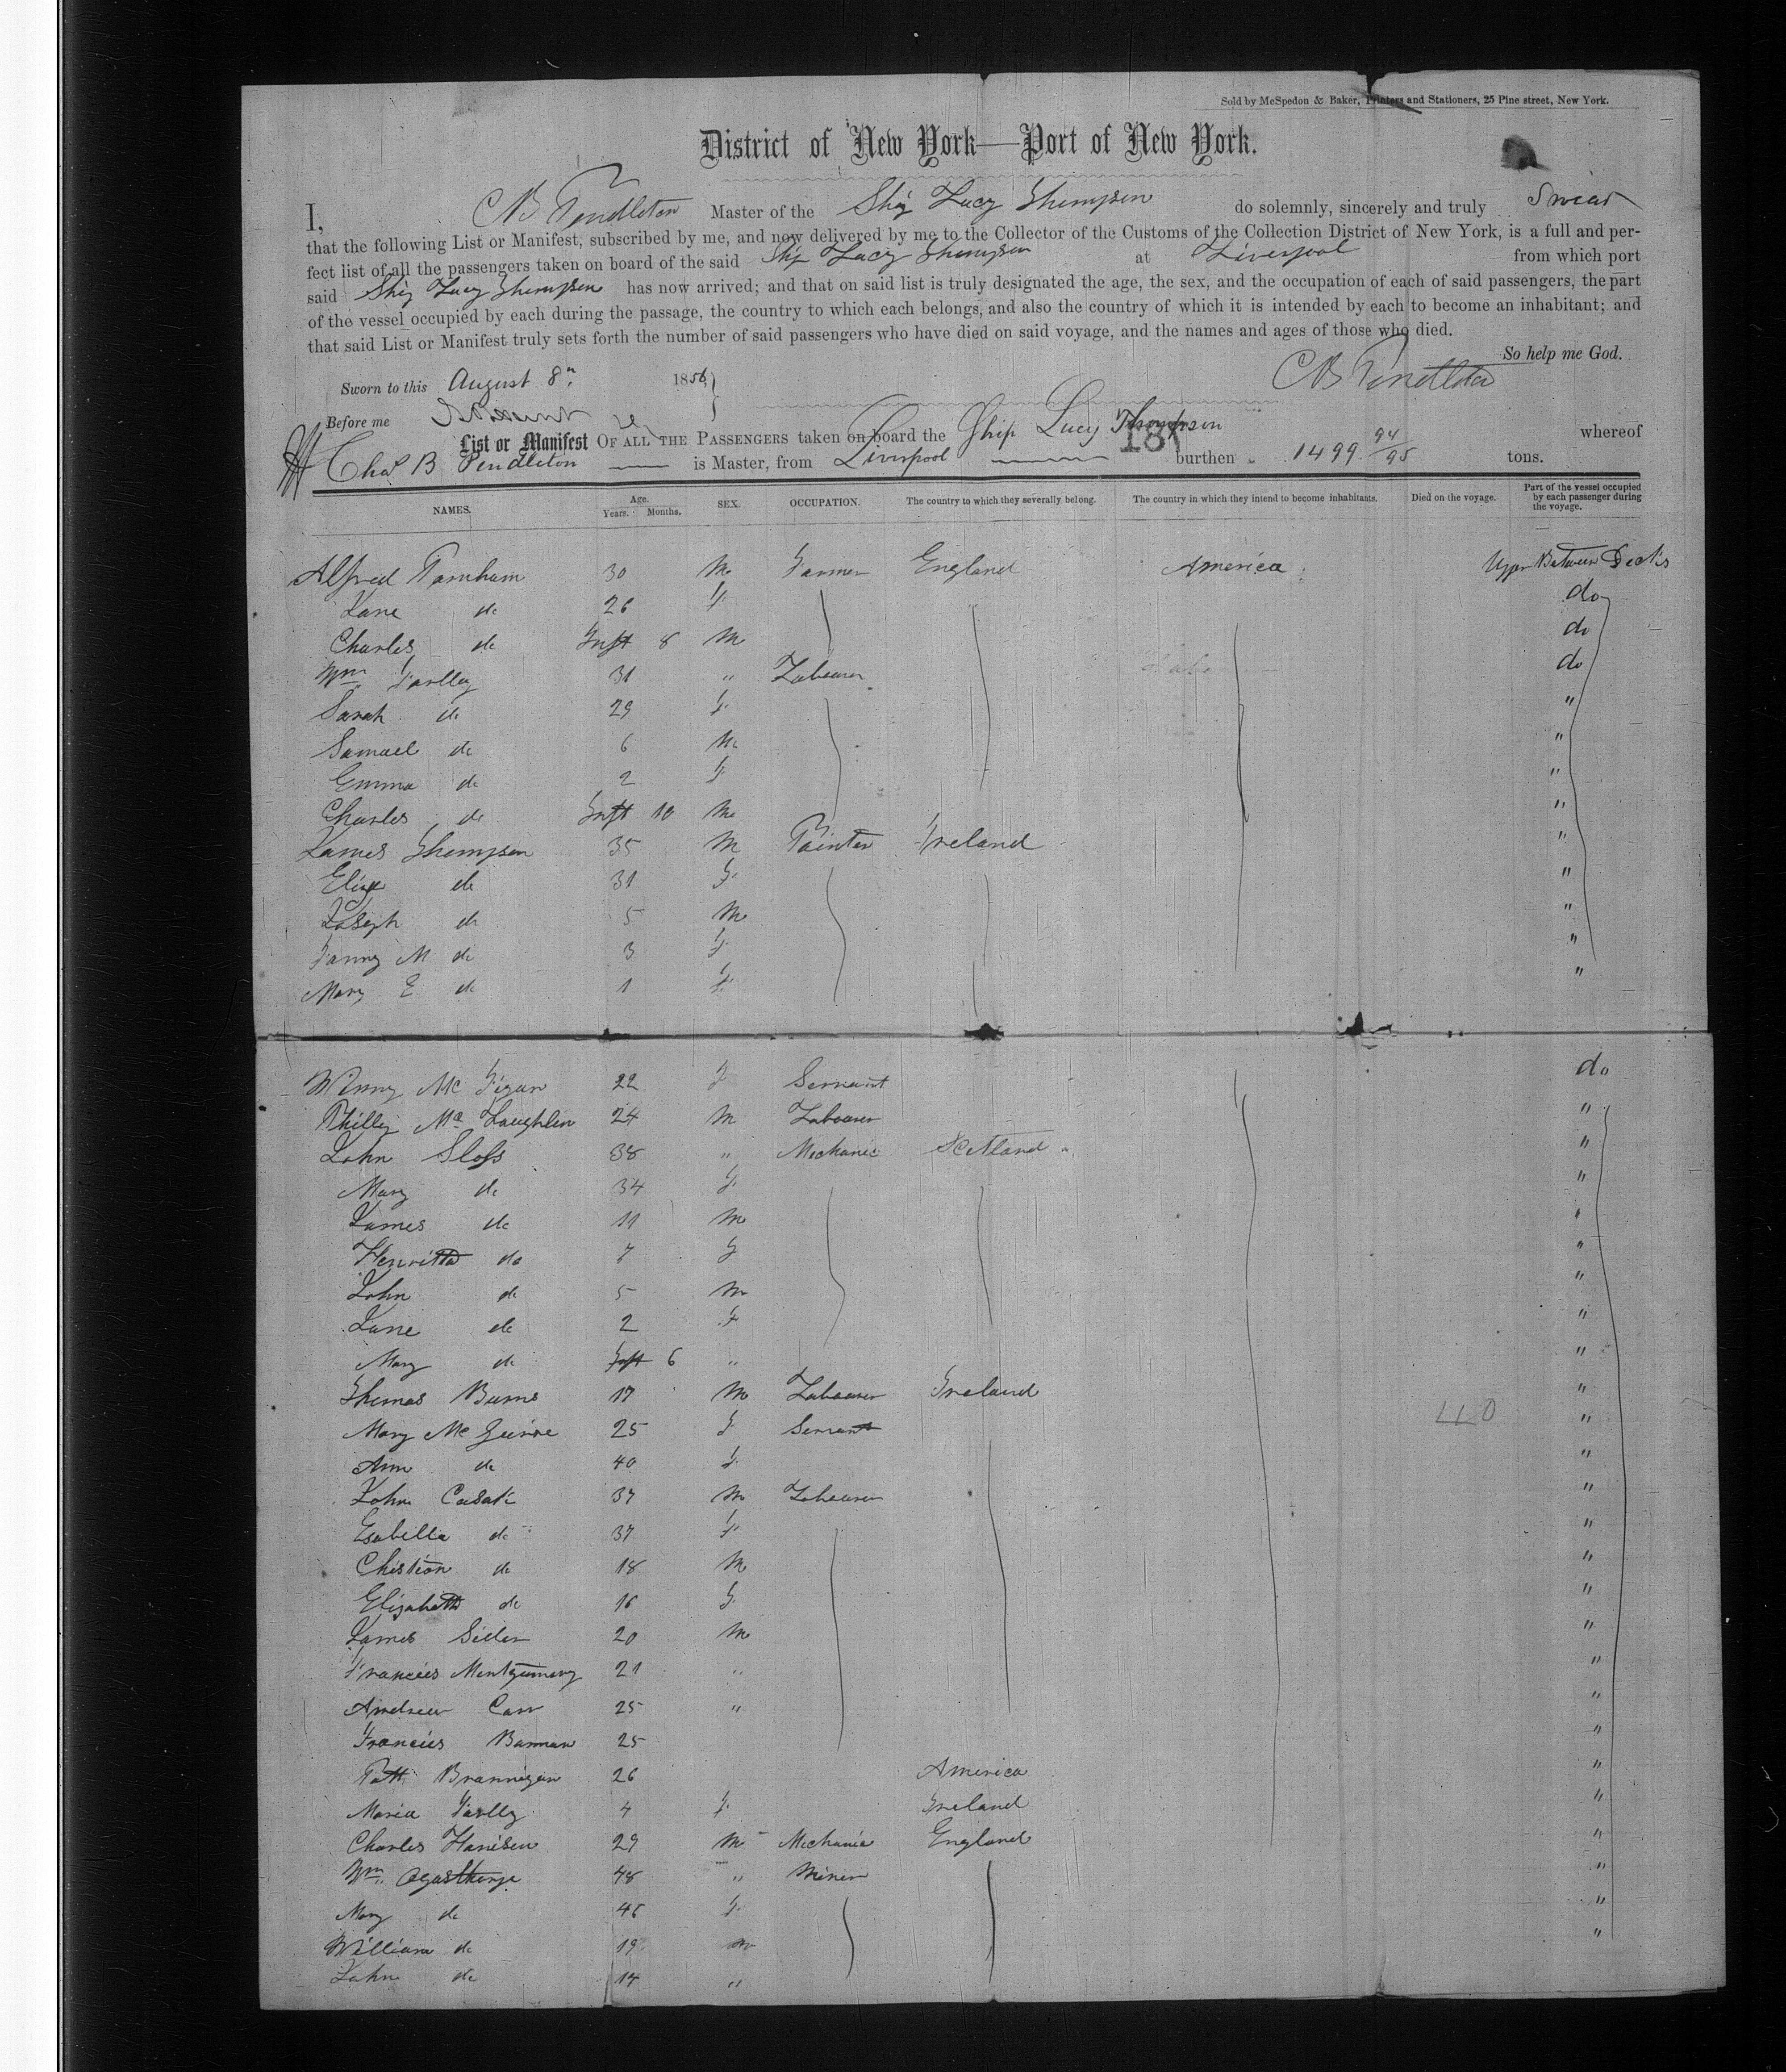 Sold by McSpedon & Baker, Printers and Stationers, 25 Pine street, New York.
District of New York—Port of New York.
I, CB Pendleton Master of the Ship Lucy Thompson do solemnly, sincerely and truly Swear
that the following List or Manifest, subscribed by me, and now delivered by me to the Collector of the Customs of the Collection District of New York, is a full and per-
fect list of all the passengers taken on board of the said Ship Lucy Thompson at Liverpool from which port
said Ship Lucy Thompson has now arrived; and that on said list is truly designated the age, the sex, and the occupation of each of said passengers, the part
of the vessel occupied by each during the passage, the country to which each belongs, and also the country of which it is intended by each to become an inhabitant; and
that said List or Manifest truly sets forth the number of said passengers who have died on said voyage, and the names and ages of those who died.
So help me God.
Sworn to this August 8th 1856 CB Pendleton
Before me
List or Manifest OF ALL THE PASSENGERS taken on board the Ship Lucy Thompson whereof
Chas B Pendleton is Master, from Liverpool burthen 1499 94/95 tons.
187
NAMES. Age. Years. Months. SEX. OCCUPATION. The country to which they severally belong. The country in which they intend to become inhabitants. Died on the voyage. Part of the vessel occupied by each passenger during the voyage.
Alfred Farnham 30 M Farmer England America Upper Between Decks
Jane do 26 F do
Charles do Inft 8 M do
Wm Farlley 31 " Labourer do
Sarah do 29 F "
Samuel do 6 M "
Emma do 2 F "
Charles do Inft 10 M "
James Thompson 35 M Painter Ireland "
Eliza do 31 F "
Joseph do 5 M "
Fanny M do 3 F "
Mary E do 1 F "
Winny Mc 22 F Servant do
Phillip Mc Laughlin 24 M Labourer "
John Sloss 38 " Mechanic Scotland "
Mary do 34 F "
James do 11 M "
Henritta do 7 F "
John do 5 M "
Jane do 2 F "
Mary do Inft 6 " "
Thomas Burns 17 M Labourer Ireland "
Mary Mc Guire 25 F Servant "
Ann do 40 F "
John 37 M Labourer "
Esabella do 37 F "
Chistian do 18 M "
Elizabeth do 16 F "
James 20 M "
Francies Montgumery 21 " "
Andrew Carr 25 " "
Francies Bannan 25 "
Patt Brannigan 26 America "
Maria Farlley 4 F Ireland "
Charles Harisen 29 M Mechanic England "
Wm 48 " Miner "
Mary do 46 F "
William do 19 M "
John do 14 "